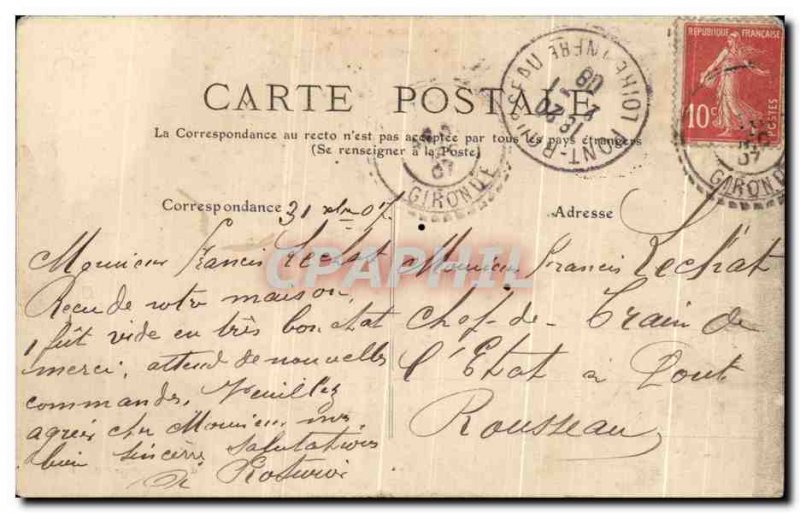 CARTE POSTALE
La Correspondance au recto n'est pas acceptée par tous les pays étrangers
(Se renseigner à la Poste)
RÉPUBLIQUE FRANÇAISE
10c
POSTES
PONT-ROUSSEAU
LOIRE INFRE
08
GIRONDE
07
GIRONDE
07
Correspondance
31 xbre 07
Monsieur Francis Lechat
Recu de votre maison,
1 fût vide en très bon état
merci, attend de nouvelles
commandes, Veuillez
agréer cher Monsieur mes
bien sincères salutations
Adresse
Monsieur Francis Lechat
Chef-de-Train de
l'Etat à Pont
Rousseau
CPAPHIL